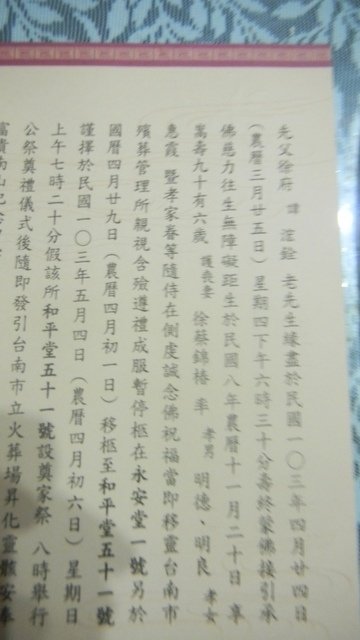 先父徐府 諱 滄銓 老先生緣盡於民國一〇三年四月廿四日
(農曆三月廿五日)星期四下午六時三十分壽終蒙佛接引承
佛慈力往生無障礙距生於民國八年農曆十一月二十日享
嵩壽九十有六歲 護喪妻 徐蔡錦椿 率 孝男 明德、明良 孝女
惠霞 暨孝家眷等隨侍在側虔誠念佛祝福當即移靈台南市
殯葬管理所親視含殮遵禮成服暫停柩在永安堂一號另於
國曆四月廿九日(農曆四月初一日)移柩至和平堂五十一號
謹擇於民國一〇三年五月四日(農曆四月初六日)星期日
上午七時二十分假該所和平堂五十一號設奠家祭 八時舉行
公祭奠禮儀式後隨即發引台南市立火葬場昇化靈骸安奉
富貴南山